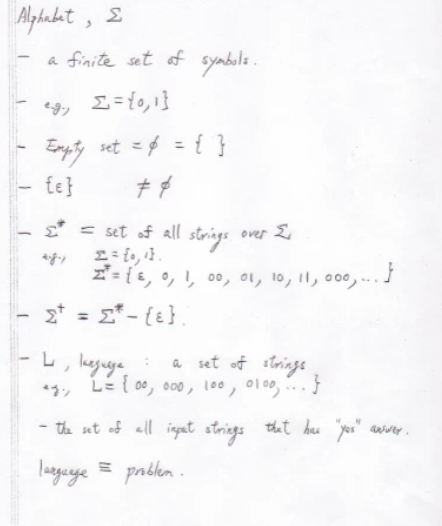 Alphabet, Σ
- a finite set of symbols.
- e.g., Σ={0,1}
- Empty set = ϕ = { }
- {ε} ≠ ϕ
- Σ* = set of all strings over Σ
e.g., Σ={0,1}.
Σ*={ε, 0, 1, 00, 01, 10, 11, 000, ...}
- Σ+ = Σ* - {ε}.
- L, language : a set of strings
e.g., L={00, 000, 100, 0100, ...}
- the set of all input strings that has "yes" answer.
language ≡ problem.